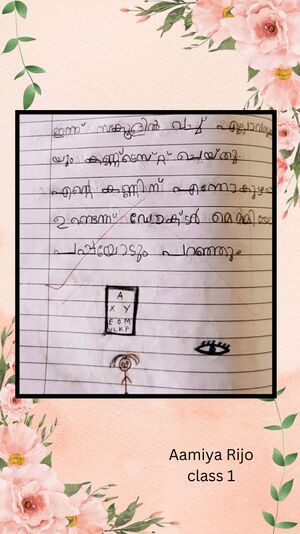 ഇന്ന് സ്കൂളിൽ വച്ച് എല്ലാവരു
യും കണ്ണ് ടെസ്റ്റ് ചെയ്തു
എന്റെ കണ്ണിന് എന്തോകുഴപ്പ
ഉണ്ടെന്ന് ഡോക്ടർ മമ്മിയോ
പപ്പയോടും പറഞ്ഞു.
A
X Y
E O M
U L K P
Aamiya Rijo
class 1